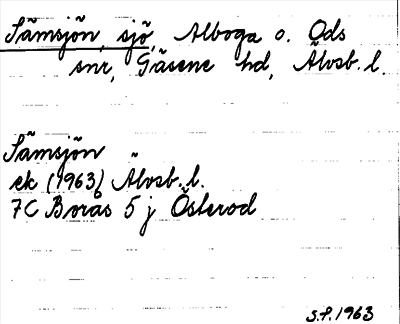 Sämsjön, sjö, Alboga o. Ods
snr, Gäsene hd, Älvsb. l.
Sämsjön
ek (1963) Älvsb. l.
7C Borås 5 j Österod
S.P. 1963